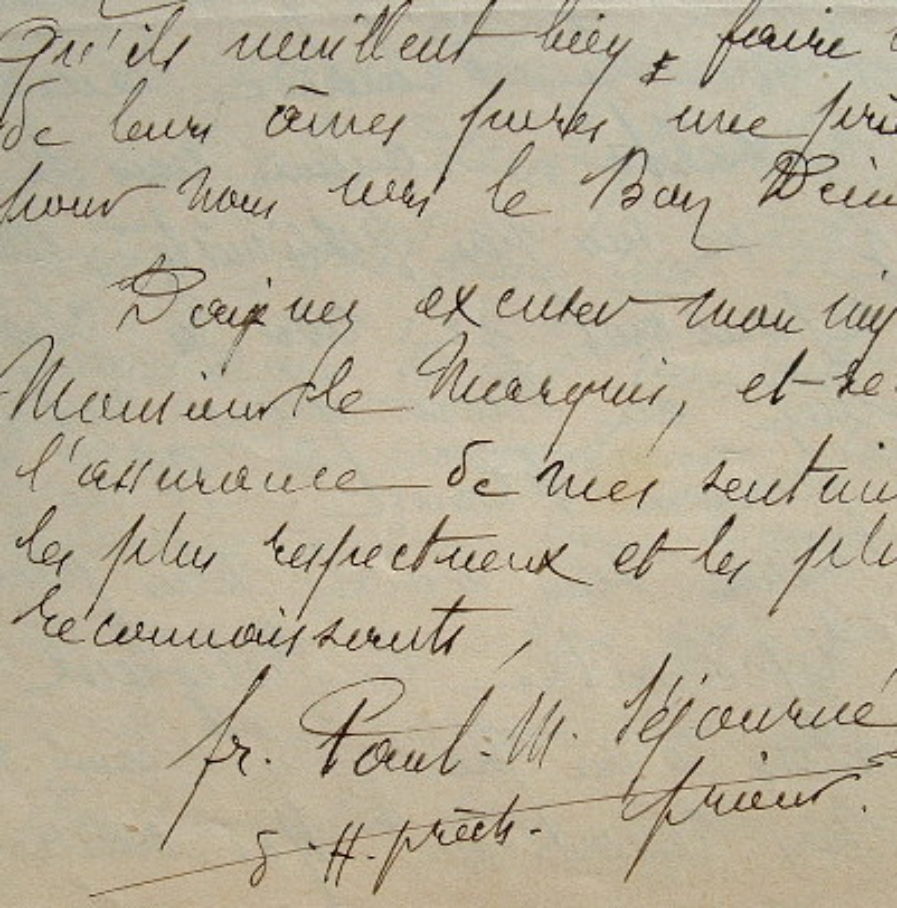 Qu'ils veuillent bien faire
de leurs âmes pures une
pour nous vers le Bon Dieu
Daignez excuser mon
Monsieur le Marquis, et
l'assurance de mes
les plus respectueux et les
reconnaissants,
fr. Paul-M. Séjourné
prêch. prieur.